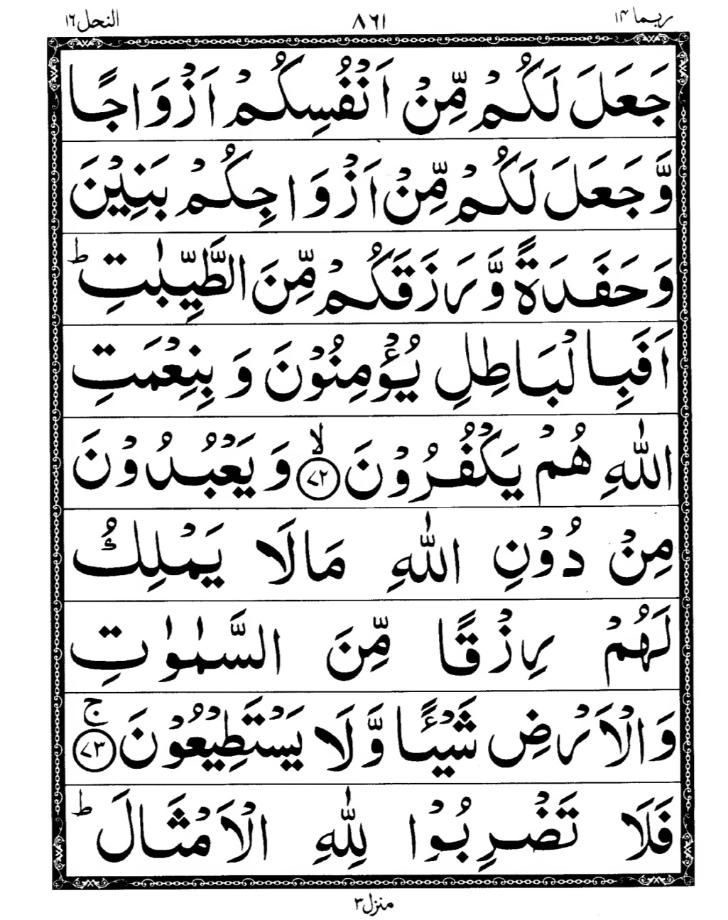 ربما ۱۴ ۸۶۱ النحل ۱۶
جَعَلَ لَكُمْ مِّنْ اَنْفُسِكُمْ اَزْوَاجًا
وَّجَعَلَ لَكُمْ مِّنْ اَزْوَاجِكُمْ بَنِيْنَ
وَحَفَدَةً وَّرَزَقَكُمْ مِّنَ الطَّيِّبٰتِ ؕ
اَفَبِالْبَاطِلِ يُؤْمِنُوْنَ وَ بِنِعْمَتِ
اللّٰهِ هُمْ يَكْفُرُوْنَ ۙ﴿۷۲﴾ وَ يَعْبُدُوْنَ
مِنْ دُوْنِ اللّٰهِ مَالَا يَمْلِكُ
لَهُمْ رِزْقًا مِّنَ السَّمٰوٰتِ
وَالْاَرْضِ شَيْـًٔا وَّلَا يَسْتَطِيْعُوْنَ ۚ﴿۷۳﴾
فَلَا تَضْرِبُوْا لِلّٰهِ الْاَمْثَالَ ؕ
منزل ۳